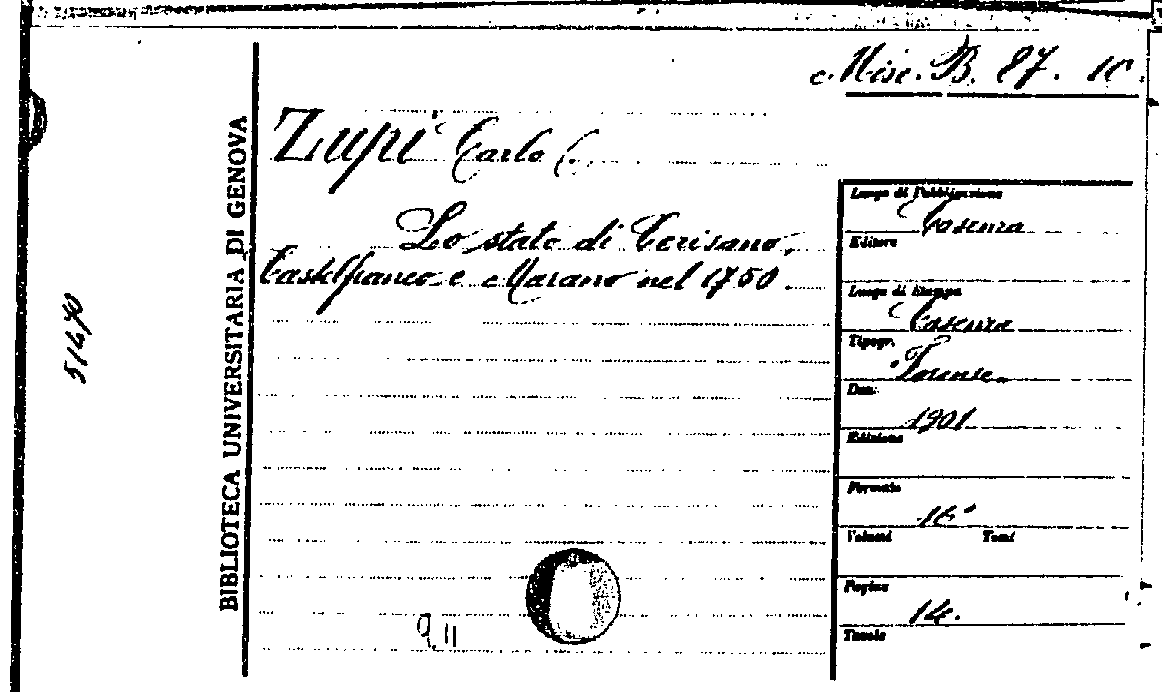 Misc. B. 87. 10.
BIBLIOTECA UNIVERSITARIA DI GENOVA
51470
Zupi Carlo C.
Lo stato di Cerisano,
Castelfranco e Marano nel 1750.
Luogo di Pubblicazione
Cosenza
Editore
Luogo di Stampa
Cosenza
Tipogr.
Forense.
Data
1901
Edizione
Formato
16°
Volumi Tomi
Pagine
14.
Tavole